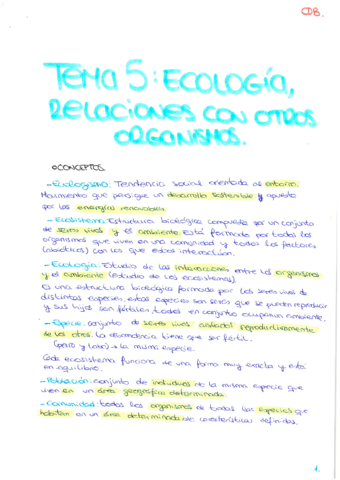 CDB.
TEMA 5: ECOLOGÍA,
RELACIONES CON OTROS
ORGANISMOS.
CONCEPTOS
- Ecologismo: Tendencia social orientada al entorno.
Movimiento que persigue un desarrollo sostenible y apuesta
por las energías renovables.
- Ecosistema: Estructura biológica compuesta por un conjunto
de seres vivos y el ambiente. Está formado por todos los
organismos que viven en una comunidad y todos los factores
(abióticos) con los que estos interactúan.
- Ecología: Estudio de las interacciones entre los organismos
y el ambiente (estudio de los ecosistemas)
Es una estructura biológica formada por los seres vivos de
distintas especies, estas especies son seres que se pueden reproducir
y sus hijos son fértiles, todos en conjunto ocupan un ambiente.
- Especie: conjunto de seres vivos aislados reproductivamente
de los otros. La descendencia tiene que ser fértil.
(perro y lobo) → la misma especie.
Cada ecosistema funciona de una forma muy exacta y está
en equilibrio.
- Población: conjunto de individuos de la misma especie que
viven en un área geográfica determinada.
- Comunidad: todos los organismos de todas las especies que
habitan en un área determinada de características definidas.
1.